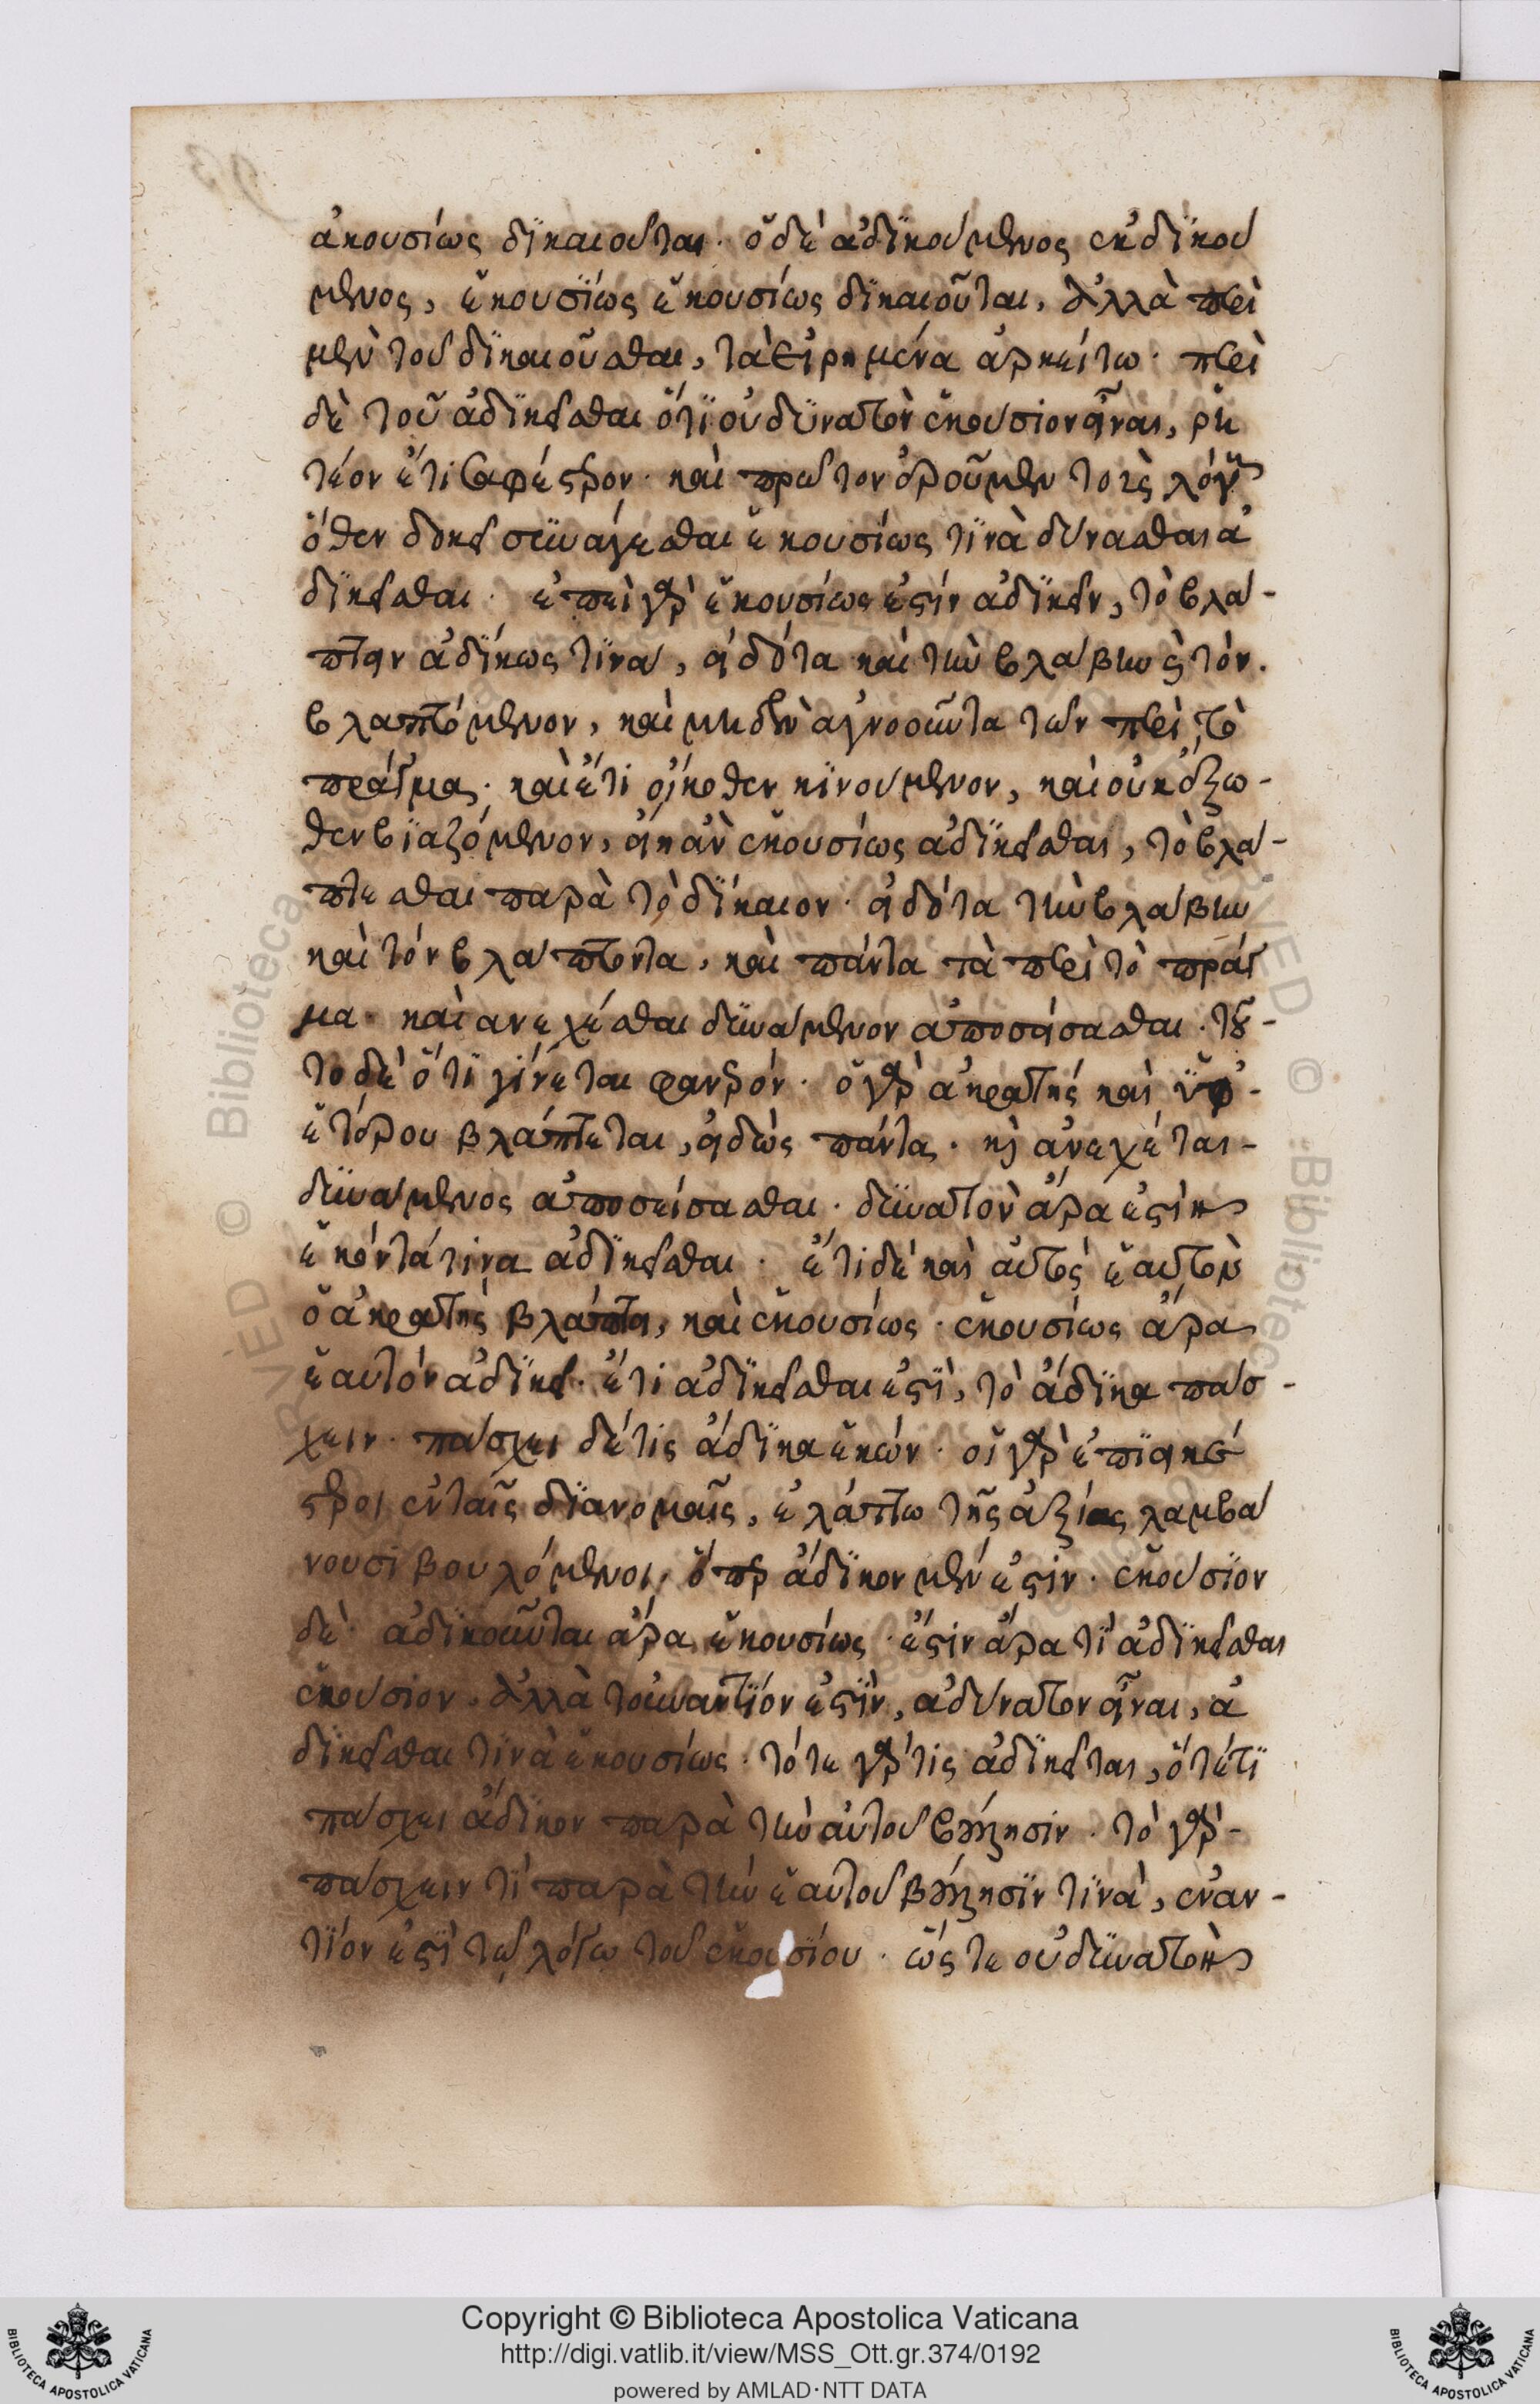 ἀκουσίως δϊκαιοῦται· ὁ δὲ ἀδϊκούμενος ἐκδϊκού
μενος, ἑκουσϊως ἑκουσίως δϊκαιοῦται, ἀλλὰ περὶ
μὲν τοῦ δϊκαιοῦσθαι, τὰ εἰρημένα ἀρκείτω· περὶ
δὲ τοῦ ἀδϊκεῖσθαι ὅτϊ οὐ δϋνατὸν ἑκούσιον εἶναι, ῥη
τέον ἔτι σαφέστερον· καὶ πρῶτον ἐροῦμεν τοὺς λόγους
ὅθεν δοκεῖ σϋνάγεσθαι ἑκουσίως τϊνὰ δύνασθαι ἀ
δϊκεῖσθαι· ἐπεὶ γὰρ ἑκουσίως ἐστίν ἀδϊκεῖν, τὸ βλά-
πτειν ἀδϊκως τϊνα, εἰδότα καὶ τὴν βλάβην ϗ τόν.
βλαπτόμενον, καὶ μηδὲν ἀγνοοῦντα τῶν περὶ τὸ
πράγμα· καὶ ἔτι οἴκοθεν κϊνούμενον, καὶ οὐκ ἔξω-
θεν βϊαζόμενον, εἴη ἂν ἑκουσίως ἀδϊκεῖσθαι, τὸ βλά-
πτεσθαι παρὰ τὸ δϊκαιον· εἰδότα τὴν βλάβην
καὶ τόν βλάπτοντα, καὶ πάντα τὰ περὶ τὸ πράγ
μα· καὶ ανεχέσθαι δϋνάμενον ἀποσείσασθαι· τοῦ-
το δὲ ὅτϊ γίνεται φανερόν· ὁ γὰρ ἀκρατής καὶ ὑφ᾽-
ἑτέρου βλάπτεται, εἰδὼς πάντα· ϗ ἀνεχέται-
δϋνάμενος ἀποσείσασθαι· δϋνατὸν ἄρα ἐστὶν
ἑκόντά τινα ἀδϊκεῖσθαι· ἔτι δὲ καὶ αὐτὸς ἑαυτὸν
ὁ ἀκρατὴς βλάπτει, καὶ ἑκουσίως· ἑκουσίως ἄρα
ἑαυτόν ἀδϊκεῖ· ἔτι ἀδϊκεῖσθαι ἐστϊ, τὸ ἄδϊκα πάσ-
χειν· πάσχει δέ τις ἄδϊκα ἑκών· οἱ γὰρ ἐπϊεικέ
στεροι ἐν ταῖς δϊανομαῖς, ἐλάττω τῆς ἀξίας λαμβά
νουσι βουλόμενοι, ὅπερ ἄδϊκον μέν ἐστιν· ἑκούσϊον
δὲ· ἀδϊκοῦνται ἄρα ἑκουσίως· ἔστιν ἄρα τϊ ἀδϊκεῖσθαι
ἑκούσιον· ἀλλὰ τοὐναντϊόν ἐστϊν, ἀδύνατον εἶναι, ἀ
δϊκεῖσθαι τϊνὰ ἑκουσίως· τότε γάρ τις ἀδϊκεῖται, ὅτέ τϊ
πάσχει ἄδϊκον παρὰ τὴν αὑτοῦ βούλησιν· τὸ γὰρ-
πάσχειν τϊ παρὰ τὴν ἑαυτοῦ βούλησϊν τϊνὰ, ἐναν-
τϊον ἐστϊ τῷ λόγῳ τοῦ ἑκουσϊου· ὥς τε οὐ δϋνατὸν
Copyright © Biblioteca Apostolica Vaticana
http://digi.vatlib.it/view/MSS_Ott.gr.374/0192
powered by AMLAD·NTT DATA